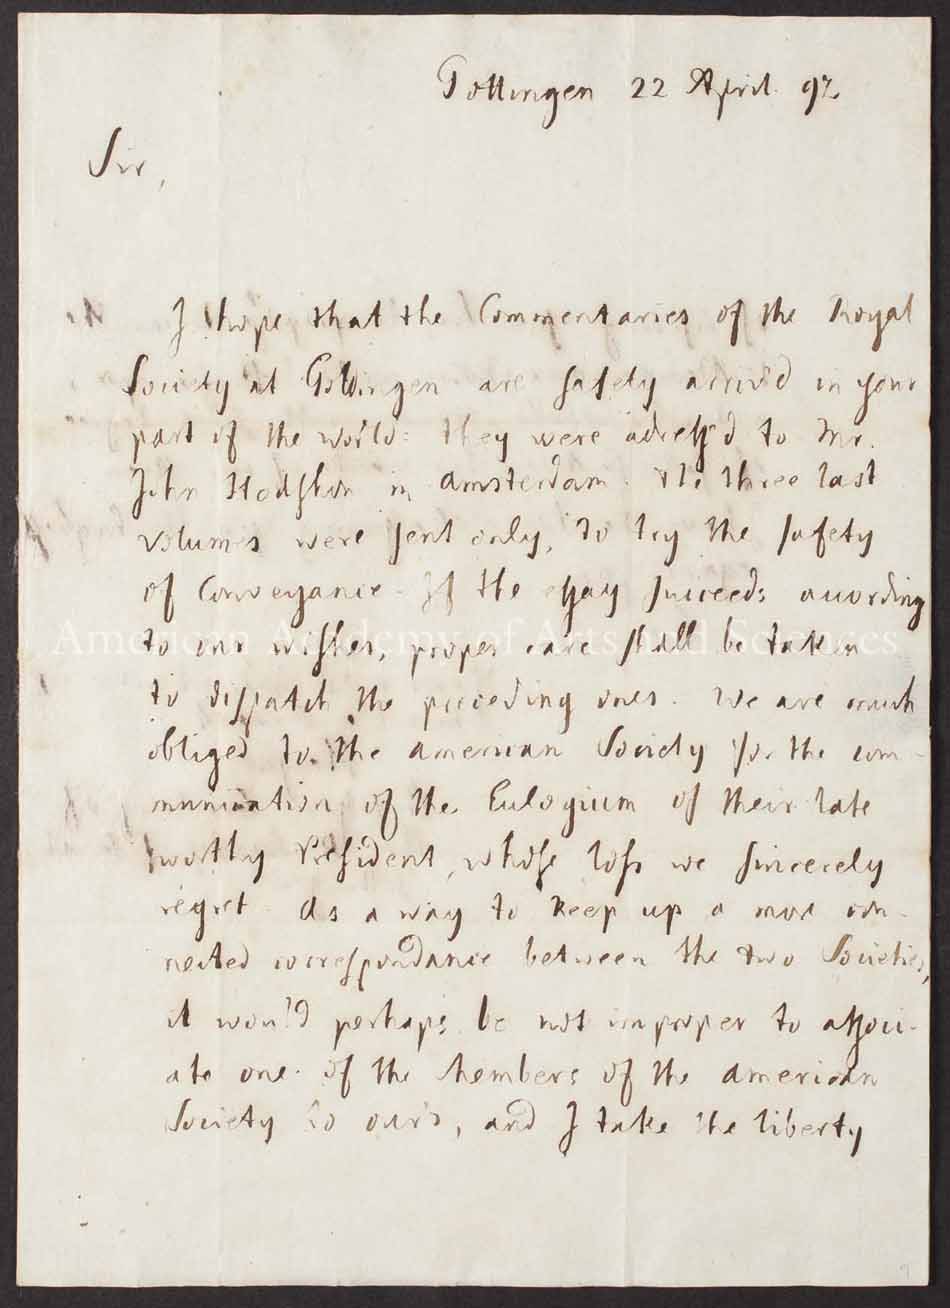 Gottingen 22 April. 92
Sir,
I hope that the Commentaries of the Royal
Society at Gottingen are safely arriv'd in your
part of the world: they were adress'd to Mr.
John Hodshon in Amsterdam. the three last
volumes were sent only, to try the safety
of Conveyance. If the essay succeeds according
American Academy of Arts and Sciences
to our wishes, proper care shall be taken
to dispatch the preceeding ones. We are much
obliged to the american Society for the com-
munication of the Eulogium of their late
worthy President, whose loss we sincerely
regret. As a way to keep up a more con-
nected correspondance between the two Societies,
it would perhaps be not improper to associ-
ate one of the Members of the american
Society to our's, and I take the liberty